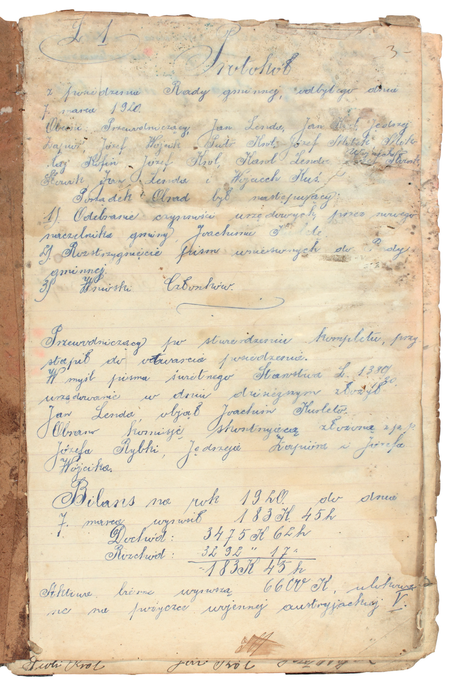 L 1
3
Protokół
z posiedzenia Rady gminnej, odbytego dnia
7 marca 1920.
Obecni Przewodniczący Jan Lenda, Jan Jędrzej
Zając, Józef Wójcik Piotr Józef
Józef Król, Karol Lenda
Jan Lenda i Wojciech Kuś
Porządek Obrad był następujący:
1) Odebranie czynności urzędowych przez nowego
naczelnika gminy Joachima
2) Rozstrzygnięcie pism wniesionych do Rady
gminnej.
3) Wnioski Członków.
Przewodniczący po stwierdzeniu kompletu, przy
stąpił do otwarcia posiedzenia.
W myśl pisma świetnego Starostwa L. 1390
urzędowanie w dniu dzisiejszym złożył
Jan Lenda, objął Joachim
Obrano komisję skontrującą złożoną z p.
Józefa Rybki Jędrzeja Zająca i Józefa
Wójcika.
Bilans na rok 1920. do dnia
7. marca wynosił 183 K 45 h
Dochód: 3475 K 62 h
Rozchód: 3292 " 17 "
183 K 45 h
bierna wynosi 6600 K, ulokowa
na na pożyczce wojennej austryjackiej V.
Piotr Król Jan Król